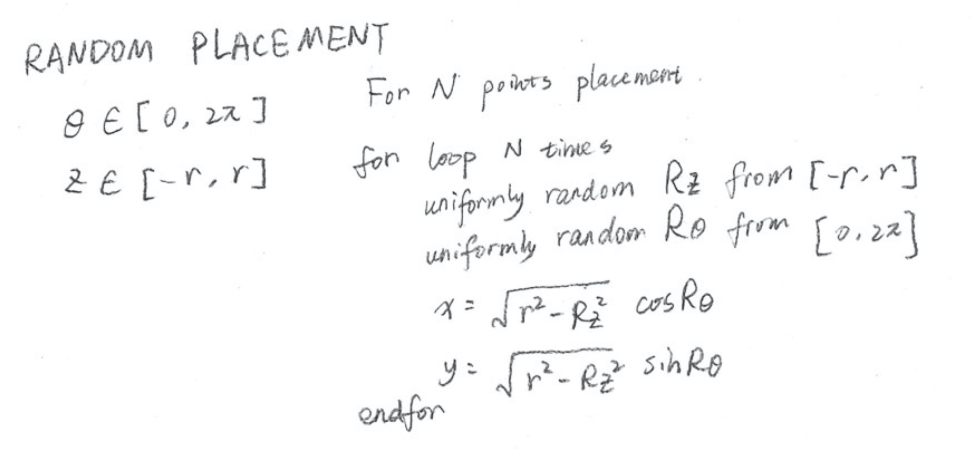 RANDOM PLACEMENT
θ ∈ [0, 2π]
z ∈ [-r, r]
For N points placement.
for loop N times
uniformly random Rz from [-r, r]
uniformly random Rθ from [0, 2π]
x = √(r² - Rz²) cos Rθ
y = √(r² - Rz²) sin Rθ
endfor